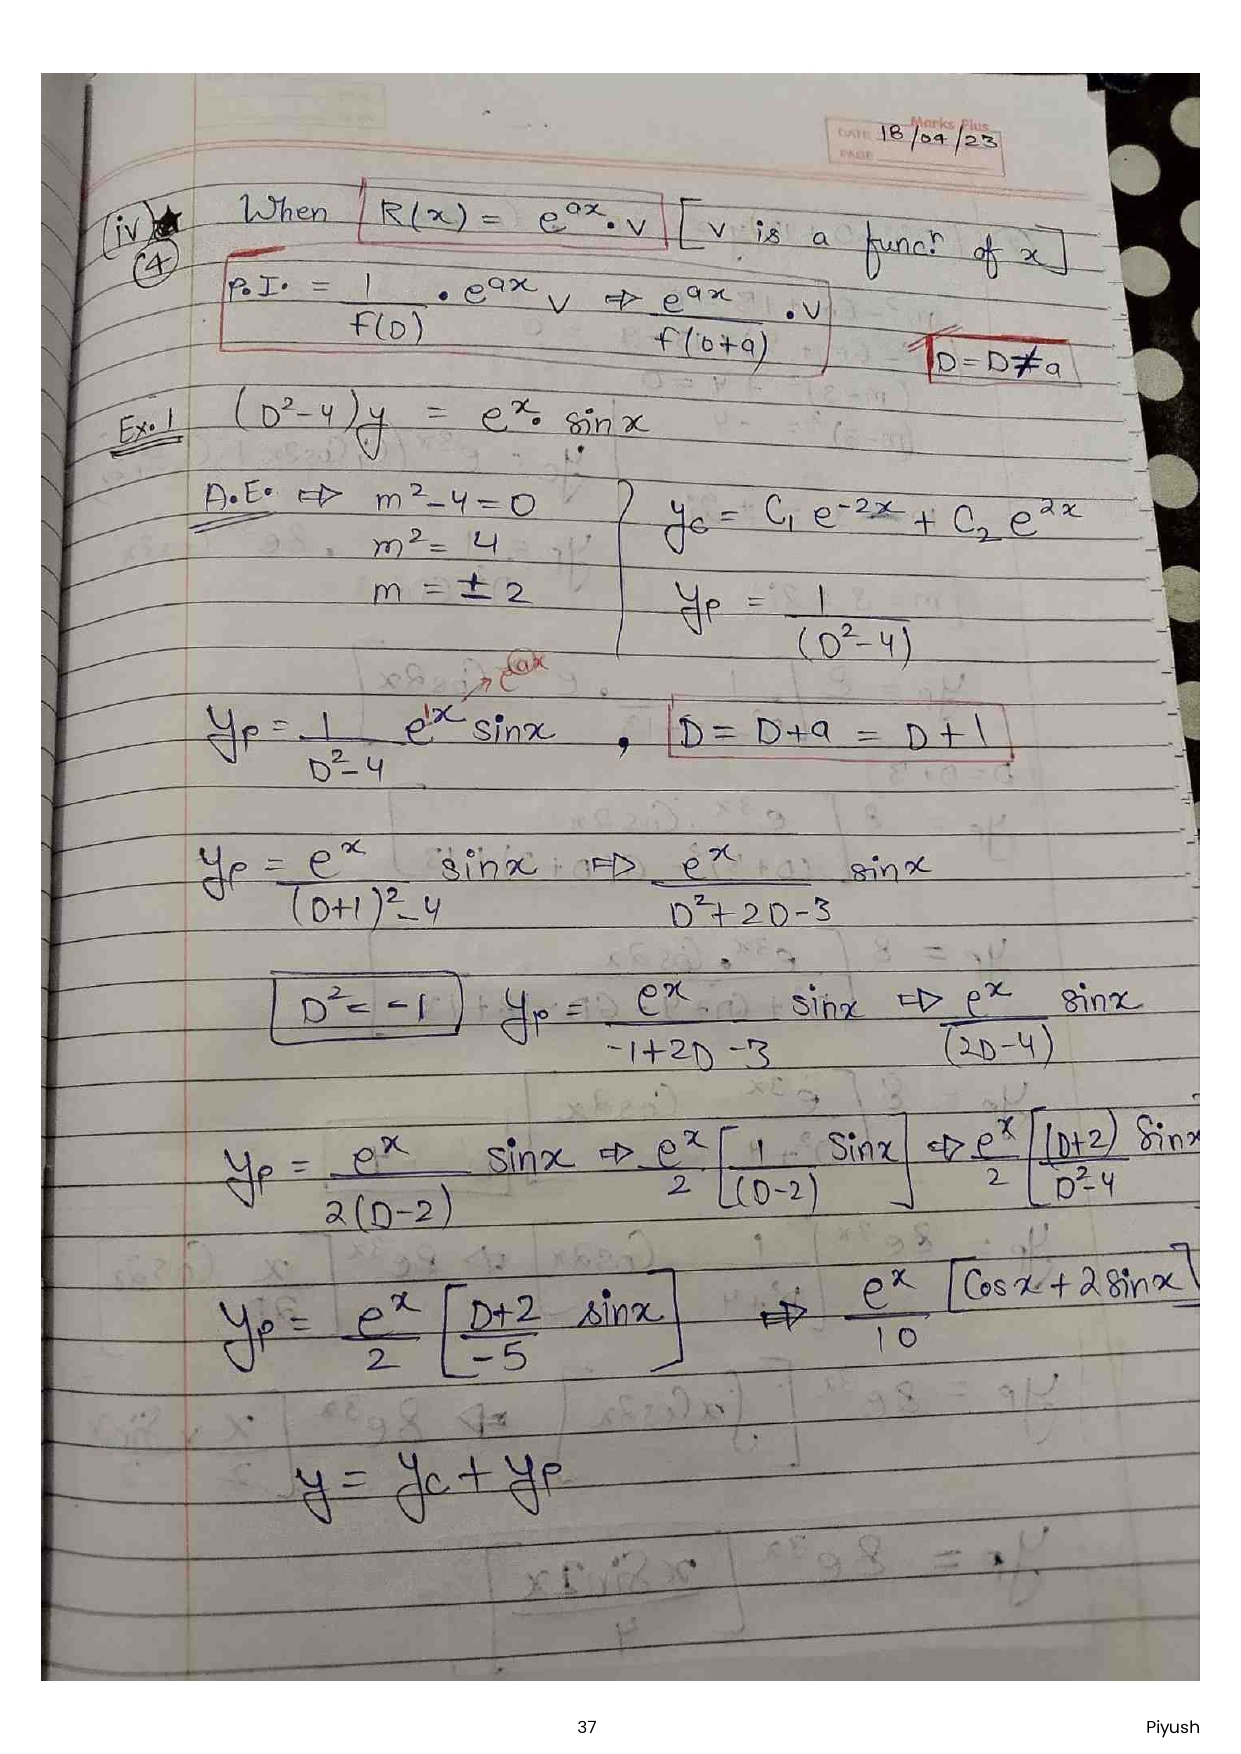 Marks Plus
DATE 18/04/23
PAGE
(iv)★ When R(x) = e^ax · v [v is a funcⁿ. of x]
(4) P.I. = 1/f(D) · e^ax v ⇒ e^ax/f(D+a) · v
D = D+a
Ex.1 (D²-4)y = e^x. sinx
A.E. ⇒ m²-4=0
m² = 4
m = ±2
y_c = C₁ e^-2x + C₂ e^2x
y_p = 1/(D²-4)
e^ax
y_p = 1/(D²-4) e^1x sinx , D = D+a = D+1
y_p = e^x/((D+1)²-4) sinx ⇒ e^x/(D²+2D-3) sinx
D² = -1 y_p = e^x/(-1+2D-3) sinx ⇒ e^x/(2D-4) sinx
y_p = e^x/(2(D-2)) sinx ⇒ e^x/2 [1/(D-2) Sinx] ⇒ e^x/2 [(D+2)/(D²-4) Sinx
y_p = e^x/2 [D+2/-5 sinx] ⇒ e^x/10 [Cosx + 2sinx]
y = y_c + y_p
37
Piyush